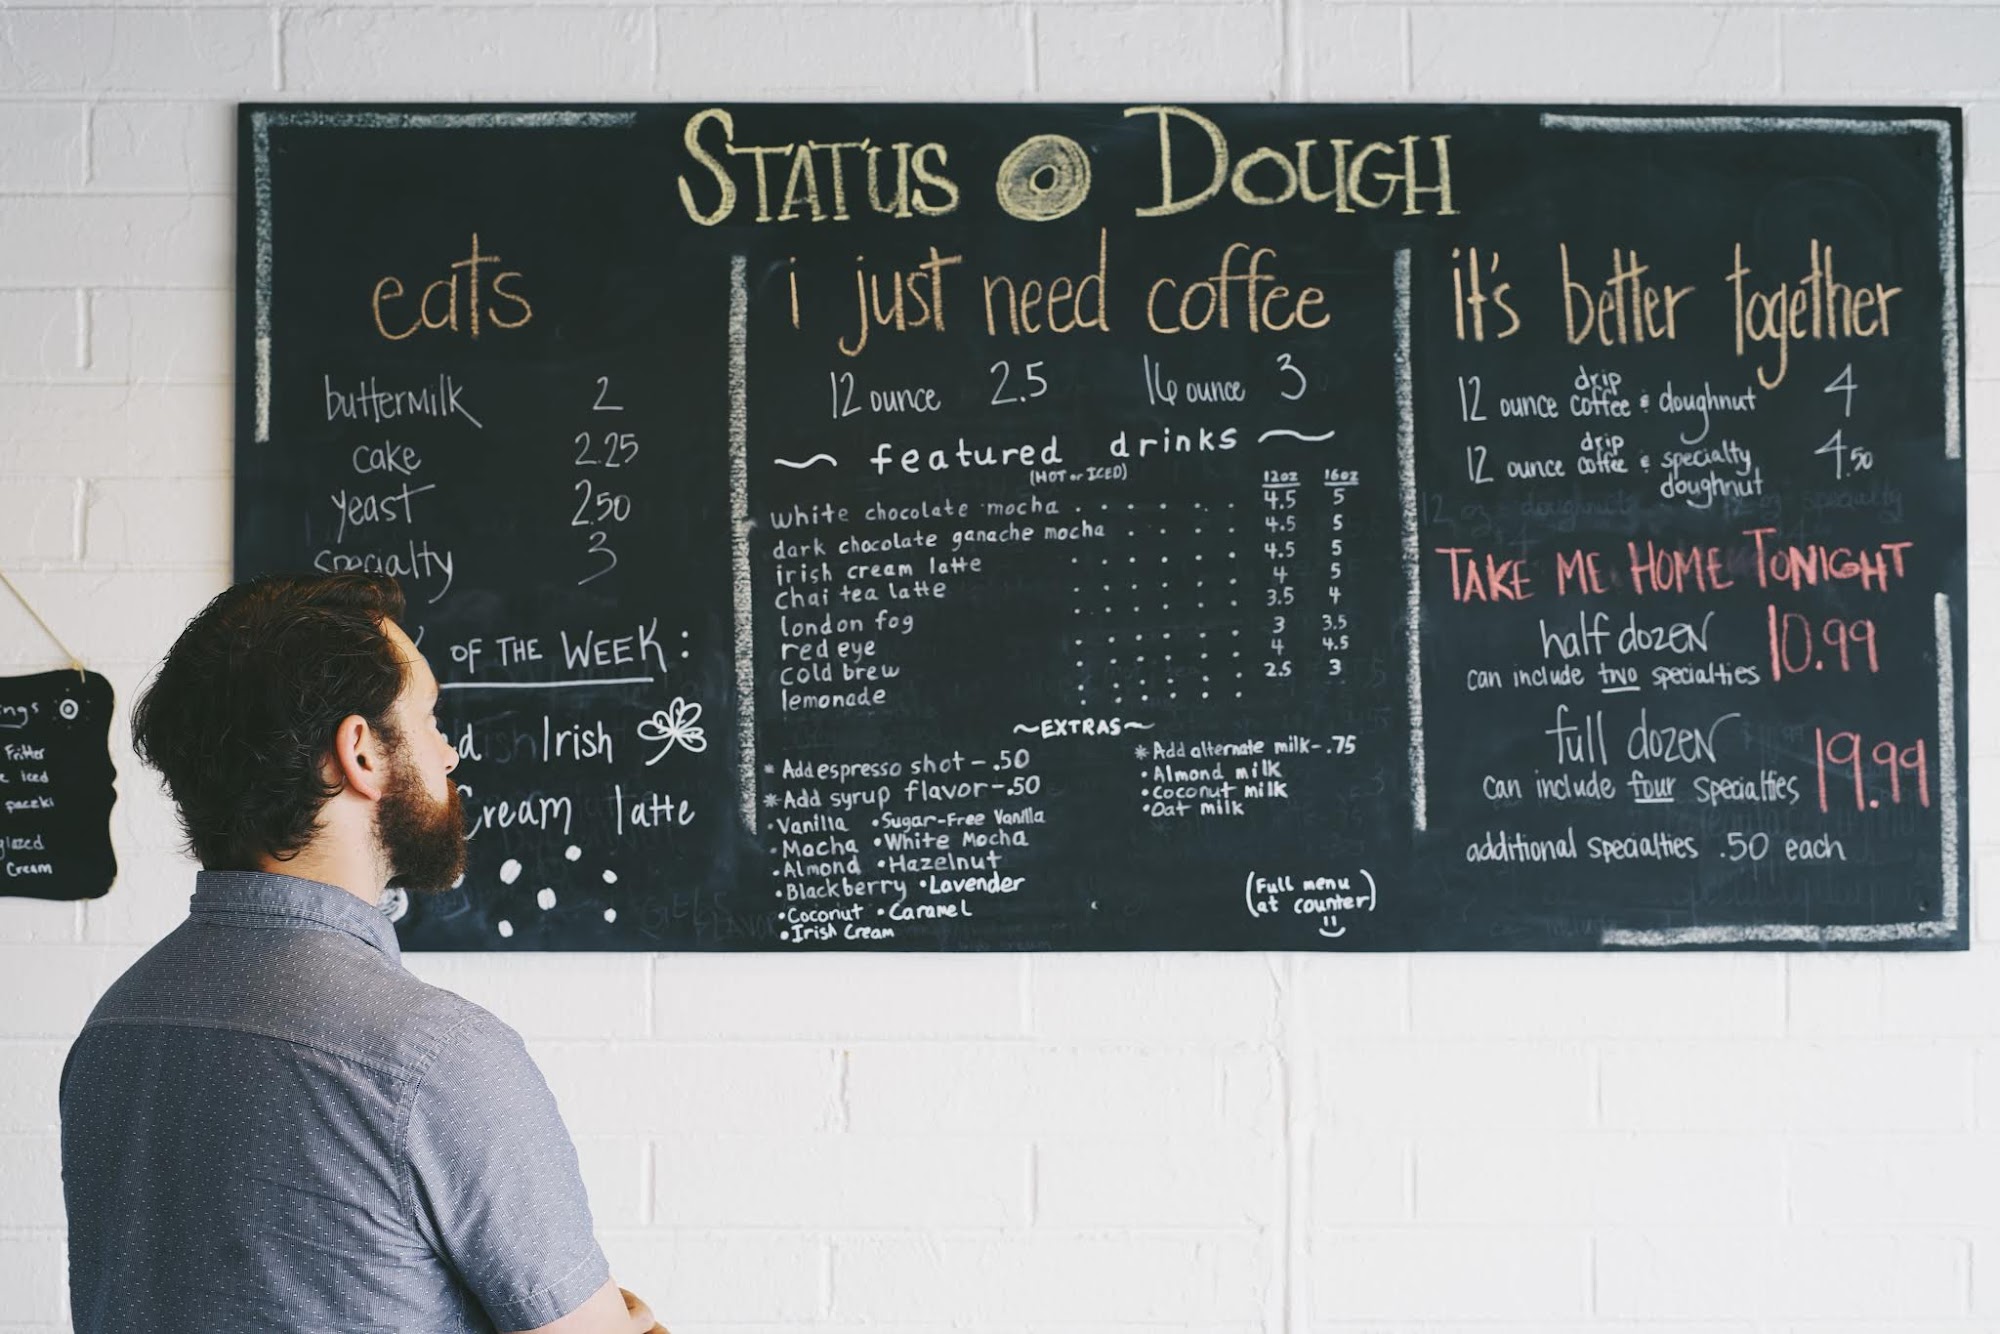 STATUS DOUGH
eats
buttermilk 2
cake 2.25
yeast 2.50
specialty 3
OF THE WEEK:
Irish
Cream latte
i just need coffee
12 ounce 2.5 16 ounce 3
featured drinks
(HOT or ICED)
12oz 16oz
white chocolate mocha . . . . . . 4.5 5
dark chocolate ganache mocha . . . . 4.5 5
irish cream latte . . . . . . 4.5 5
chai tea latte . . . . . . 4 5
london fog . . . . . . 3.5 4
red eye . . . . . . 3 3.5
cold brew . . . . . . 4 4.5
lemonade . . . . . . 2.5 3
~EXTRAS~
* Add espresso shot - .50
* Add syrup flavor - .50
• Vanilla • Sugar-Free Vanilla
• Mocha • White Mocha
• Almond • Hazelnut
• Blackberry • Lavender
• Coconut • Caramel
• Irish Cream
* Add alternate milk - .75
• Almond milk
• Coconut milk
• Oat milk
(Full menu
at counter)
it's better together
12 ounce drip coffee & doughnut 4
12 ounce drip coffee & specialty doughnut 4.50
TAKE ME HOME TONIGHT
half dozen 10.99
can include two specialties
full dozen 19.99
can include four specialties
additional specialties .50 each
Fritter
iced
paczki
Cream